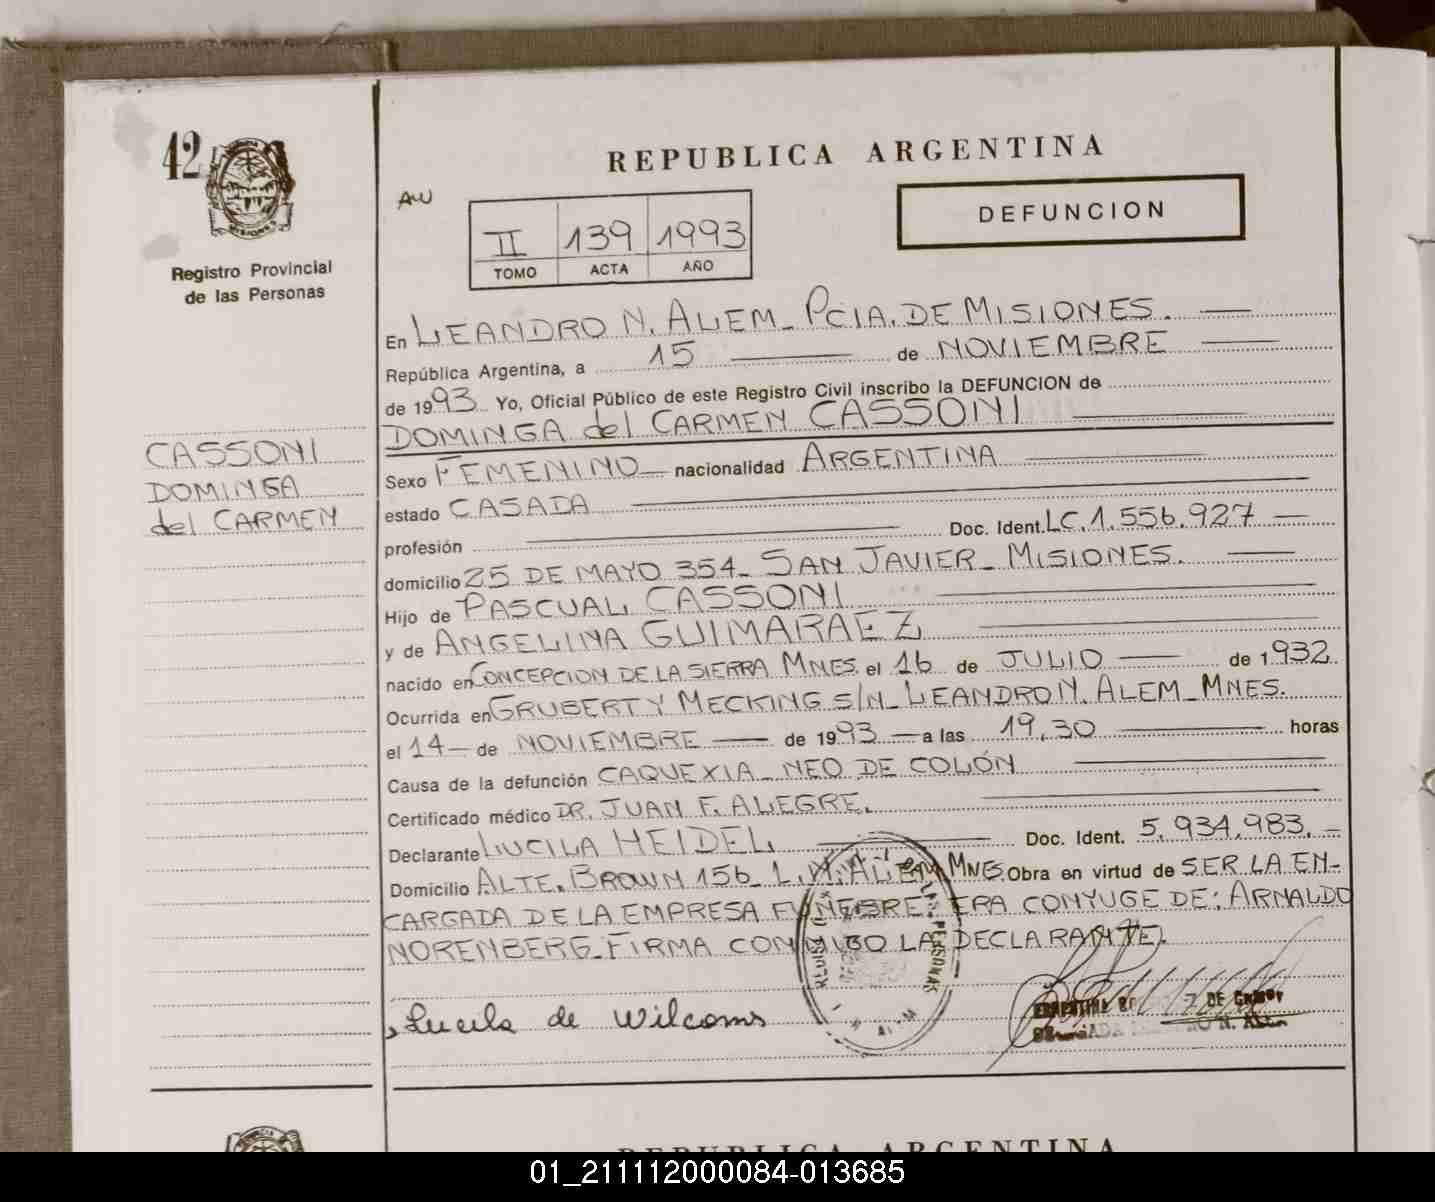 42
MISIONES
Registro Provincial
de las Personas
CASSONI
DOMINGA
del CARMEN
REPUBLICA ARGENTINA
AW
II 139 1993
TOMO ACTA AÑO
DEFUNCION
En LEANDRO N. ALEM - PCIA. DE MISIONES.
República Argentina, a 15 de NOVIEMBRE
de 1993 Yo, Oficial Público de este Registro Civil inscribo la DEFUNCION de
DOMINGA del CARMEN CASSONI
Sexo FEMENINO nacionalidad ARGENTINA
estado CASADA
profesión Doc. Ident. LC. 1.556.927
domicilio 25 DE MAYO 354 - SAN JAVIER - MISIONES.
Hijo de PASCUAL CASSONI
y de ANGELINA GUIMARAEZ
nacido en CONCEPCION DE LA SIERRA MNES. el 16 de JULIO de 1932
Ocurrida en GRUBERT Y MECKING S/N - LEANDRO N. ALEM - MNES.
el 14 de NOVIEMBRE de 1993 a las 19,30 horas
Causa de la defunción CAQUEXIA - NEO DE COLÓN
Certificado médico DR. JUAN F. ALEGRE.
Declarante LUCILA HEIDEL Doc. Ident. 5.934.983.
Domicilio ALTE. BROWN 156 - L. N. ALEM MNES. Obra en virtud de SER LA EN-
CARGADA DE LA EMPRESA FUNEBRE. ERA CONYUGE DE: ARNALDO
NORENBERG - FIRMA CONMIGO LA DECLARANTE.
Lucila de Wilcoms
DE
REPUBLICA ARGENTINA
01_211112000084-013685